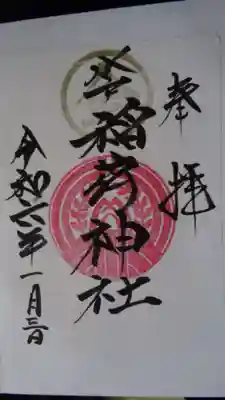 奉拝
幸稲荷神社
令和六年一月三日